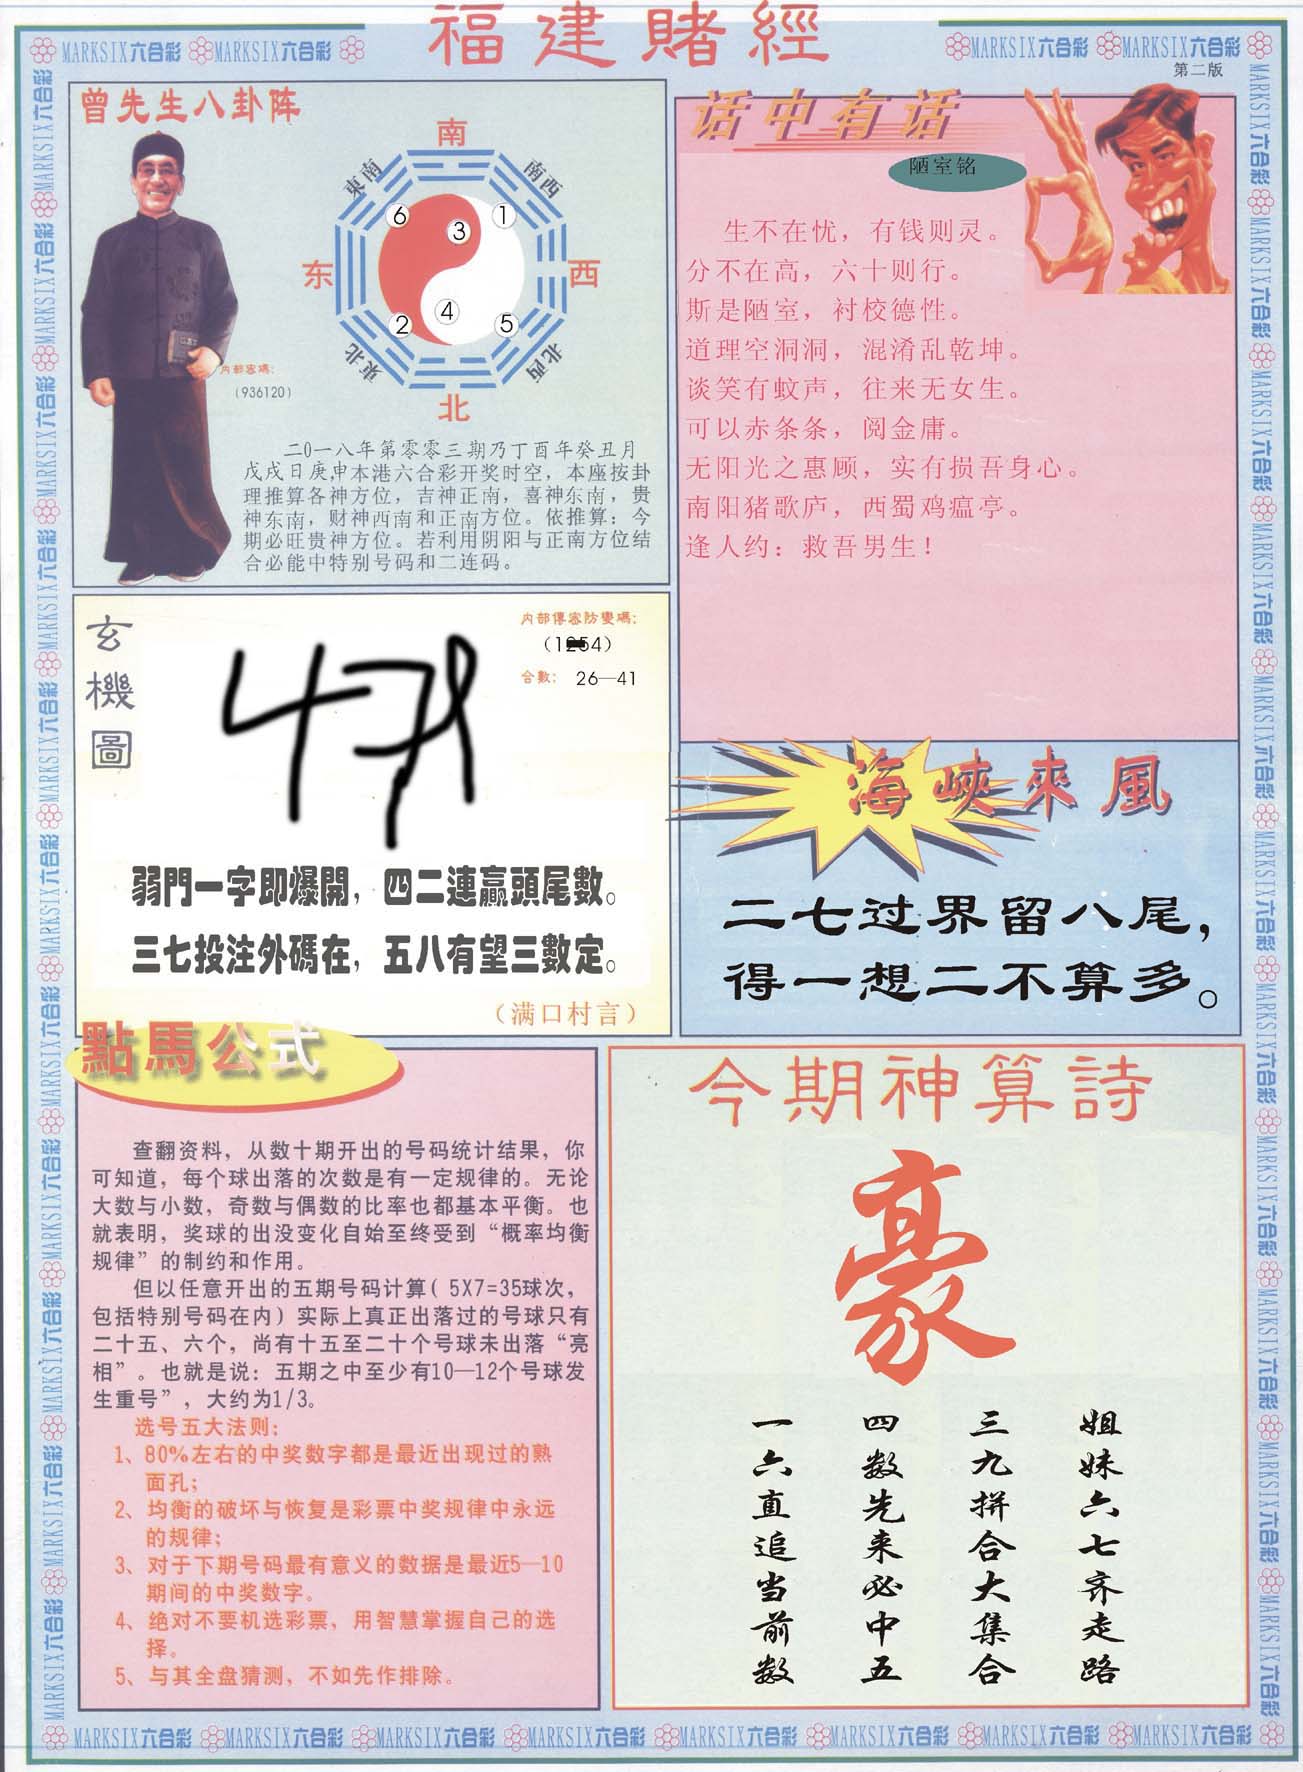 福建賭經
MARKSIX六合彩 MARKSIX六合彩
MARKSIX六合彩 MARKSIX六合彩
第二版
曾先生八卦阵
南
東南
南西
6
3
1
东
西
4
2
5
東北
北西
北
内部密碼:
(936120)
二0一八年第零零三期乃丁酉年癸丑月
戊戌日庚申本港六合彩开奖时空，本座按卦
理推算各神方位，吉神正南，喜神东南，贵
神东南，财神西南和正南方位。依推算：今
期必旺贵神方位。若利用阴阳与正南方位结
合必能中特别号码和二连码。
话中有话
陋室铭
生不在忧，有钱则灵。
分不在高，六十则行。
斯是陋室，衬校德性。
道理空洞洞，混淆乱乾坤。
谈笑有蚊声，往来无女生。
可以赤条条，阅金庸。
无阳光之惠顾，实有损吾身心。
南阳猪歌庐，西蜀鸡瘟亭。
逢人约：救吾男生！
玄機圖
内部傳密防變碼:
合數: 26—41
弱門一字即爆開，四二連贏頭尾數。
三七投注外碼在，五八有望三數定。
（满口村言）
海峽來風
二七过界留八尾，
得一想二不算多。
點馬公式
查翻资料，从数十期开出的号码统计结果，你
可知道，每个球出落的次数是有一定规律的。无论
大数与小数，奇数与偶数的比率也都基本平衡。也
就表明，奖球的出没变化自始至终受到“概率均衡
规律”的制约和作用。
但以任意开出的五期号码计算( 5X7=35球次，
包括特别号码在内）实际上真正出落过的号球只有
二十五、六个，尚有十五至二十个号球未出落“亮
相”。也就是说：五期之中至少有10—12个号球发
生重号”，大约为1/3。
选号五大法则：
1、80%左右的中奖数字都是最近出现过的熟
面孔；
2、均衡的破坏与恢复是彩票中奖规律中永远
的规律；
3、对于下期号码最有意义的数据是最近5—10
期间的中奖数字。
4、绝对不要机选彩票，用智慧掌握自己的选
择。
5、与其全盘猜测，不如先作排除。
今期神算詩
豪
姐妹六七齐走路
三九拼合大集合
四数先来必中五
一六直追当前数
MARKSIX六合彩 MARKSIX六合彩 MARKSIX六合彩 MARKSIX六合彩 MARKSIX六合彩 MARKSIX六合彩 MARKSIX六合彩 MARKSIX六合彩